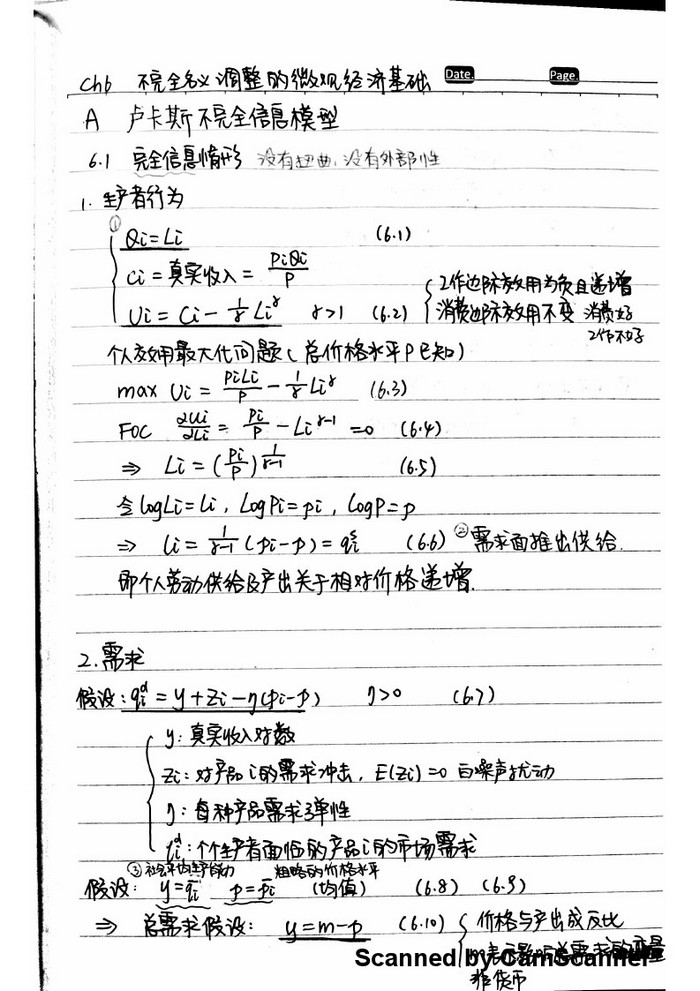 Ch6 不完全名义调整的微观经济基础 Date. Page.
A 卢卡斯不完全信息模型
6.1 完全信息情形 没有扭曲,没有外部性
1. 生产者行为
① Qi=Li (6.1)
Ci=真实收入= PiQi/P
Ui = Ci - 1/γ Li^γ γ>1 (6.2) { 工作边际效用为负且递增
消费边际效用不变 消费好
工作不好
个人效用最大化问题(总价格水平P已知)
max Ui = PiLi/P - 1/γ Li^γ (6.3)
FOC ∂Ui/∂Li = Pi/P - Li^γ-1 =0 (6.4)
⇒ Li=(Pi/P)^1/γ-1 (6.5)
令logLi=li, LogPi=pi, LogP=p
⇒ li= 1/γ-1 (pi-p)=qi^s (6.6) ②需求面推出供给.
即个人劳动供给及产出关于相对价格递增.
2.需求
假设:qi^d = y+zi-η(pi-p) η>0 (6.7)
y:真实收入对数
zi:对产品i的需求冲击, E(zi)=0 白噪声扰动
η:每种产品需求弹性
qi^d:个个生产者面临的产品i的市场需求
③社会平均生产能力 粗略的价格水平
假设: y=q̄i p=p̄i (均值) (6.8) (6.9)
⇒ 总需求假设: y=m-p (6.10) { 价格与产出成反比
非货币
Scanned by CamScanner